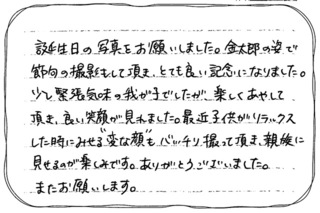 誕生日の写真をお願いしました。金太郎の姿で
節句の撮影もして頂き、とても良い記念になりました。
少し緊張気味の我が子でしたが、楽しくあやして
頂き、良い笑顔が見れました。最近子供がリラックス
した時にみせる"変な顔"もバッチリ撮って頂き、親族に
見せるのが楽しみです。ありがとうございました。
またお願いします。